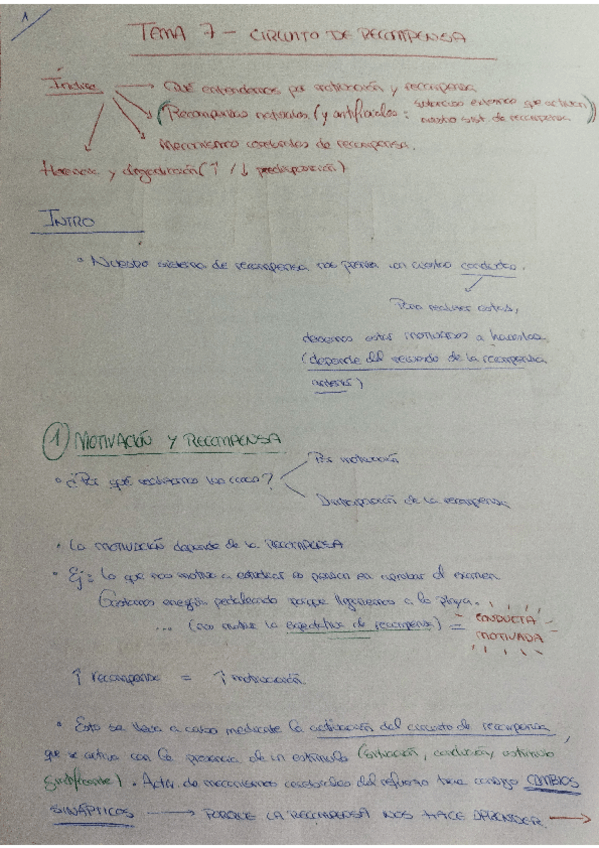 1
TEMA 7 - CIRCUITO DE RECOMPENSA
Índice → Qué entendemos por motivación y recompensa
(Recompensas naturales (y artificiales: sustancias externas que activan
nuestro sist. de recompensa))
Mecanismos cerebrales de recompensa.
Herencia y drogadicción (↑/↓ predisposición)
INTRO
• Nuestro sistema de recompensa nos premia con nuestra conducta.
Para realizar estas,
debemos estar motivados a hacerlas
(depende del recuerdo de la recompensa
anterior)
① MOTIVACIÓN Y RECOMPENSA
• ¿Por qué realizamos las cosas? Por motivación
de la recompensa
• La MOTIVACIÓN depende de la RECOMPENSA
• Ej: Lo que nos motiva a estudiar es pensar en aprobar el examen
Gastamos energía pedaleando porque llegaremos a la playa.
... (nos motiva la expectativa de recompensa) = CONDUCTA
MOTIVADA
↑ recompensa = ↑ motivación
• Esto se lleva a cabo mediante la activación del circuito de recompensa,
que se activa con la presencia de un estímulo (situación, conducta, estímulo
significante). mecanismos cerebrales del refuerzo trae consigo CAMBIOS
SINÁPTICOS → PORQUE LA RECOMPENSA NOS HACE APRENDER. →